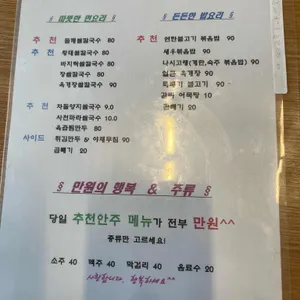 § 따뜻한 면요리 §
추천 들깨쌀칼국수 80
추천 황태쌀칼국수 80
바지락쌀칼국수 80
장쌀칼국수 80
육개장쌀칼국수 90
추천 차돌양지쌀국수 9.0
사천마라쌀국수 90
육즙찜만두 80
사이드 튀김만두 & 야채무침 90
곱빼기 20
§ 든든한 밥요리 §
추천 언양불고기 볶음밥 90
새우볶음밥 90
나시고랭(계란,숙주 볶음밥) 90
얼큰 육개장 90
뚝배기 불고기 90
갈비 어묵탕 10
곱빼기 20
§ 만원의 행복 & 주류 §
당일 추천안주 메뉴가 전부 만원^^
종류만 고르세요!
소주 40 맥주 40 막걸리 40 음료수 20
사랑합니다. 행복하세요^^